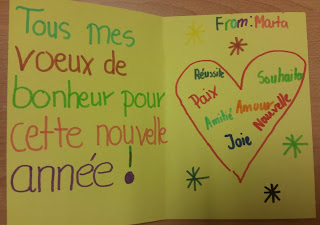 Tous mes
voeux de
bonheur pour
cette nouvelle
année!
From: Marta
Réussite
Souhaiter
Paix
Amitié Amour
Nouvelle
Joie